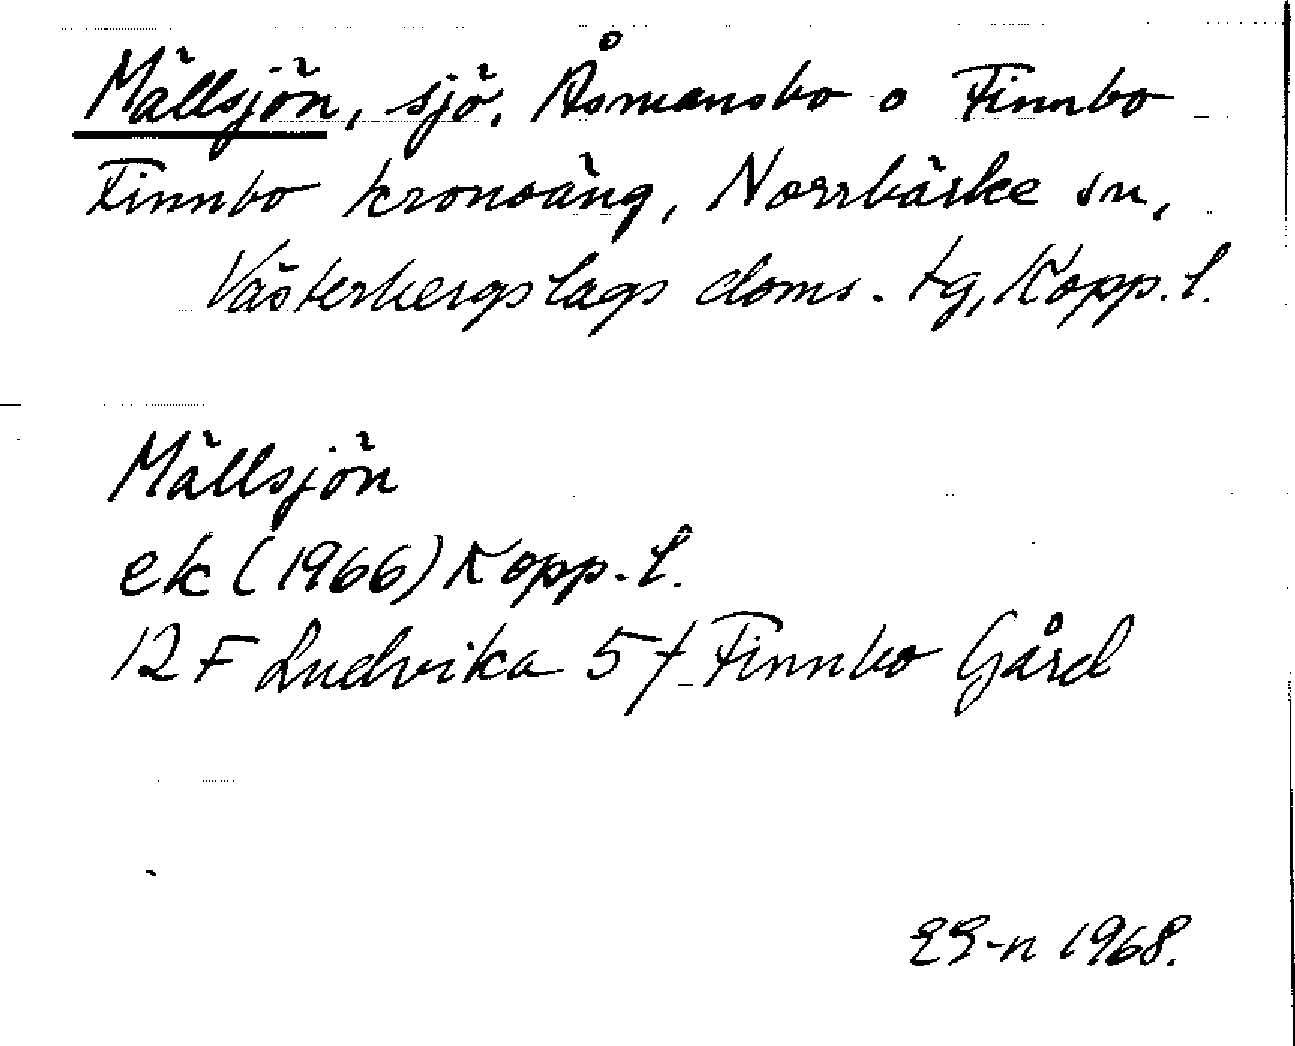 Mällsjön, sjö. Åsmansbo o Finnbo
Finnbo kronoäng, Norrbärke sn,
Västerbergslags doms. tg, Kopp. l.
Mällsjön
ek (1966) Kopp. l.
12 F Ludvika 5 f Finnbo Gård
EG-n 1968.